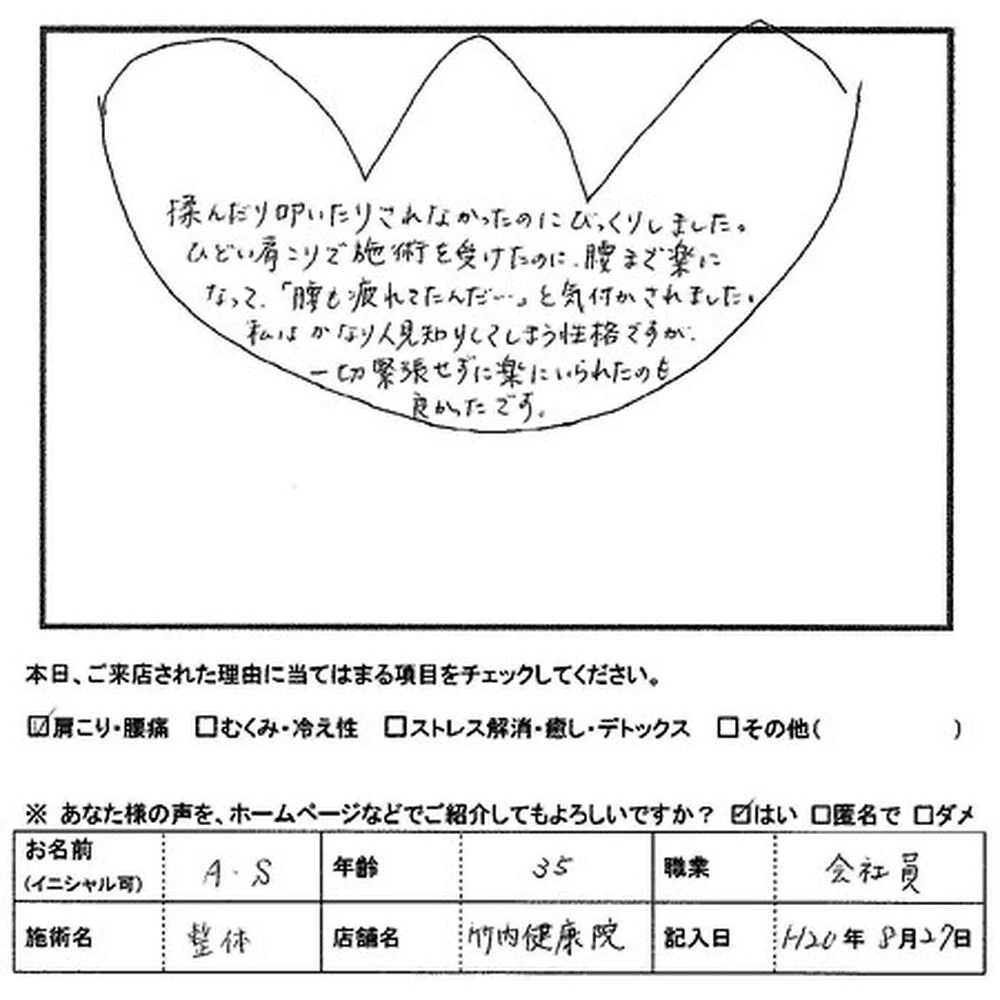 揉んだり叩いたりされなかったのにびっくりしました。
ひどい肩こりで施術を受けたのに、腰まで楽に
なって、「腰も疲れてたんだ…」と気付かされました。
私はかなり人見知りしてしまう性格ですが、
一切緊張せずに楽にいられたのも
良かったです。
本日、ご来店された理由に当てはまる項目をチェックしてください。
☑肩こり・腰痛 □むくみ・冷え性 □ストレス解消・癒し・デトックス □その他( )
※ あなた様の声を、ホームページなどでご紹介してもよろしいですか？ ☑はい □匿名で □ダメ
お名前 (イニシャル可) A・S 年齢 35 職業 会社員
施術名 整体 店舗名 竹内健康院 記入日 H20年 8月27日